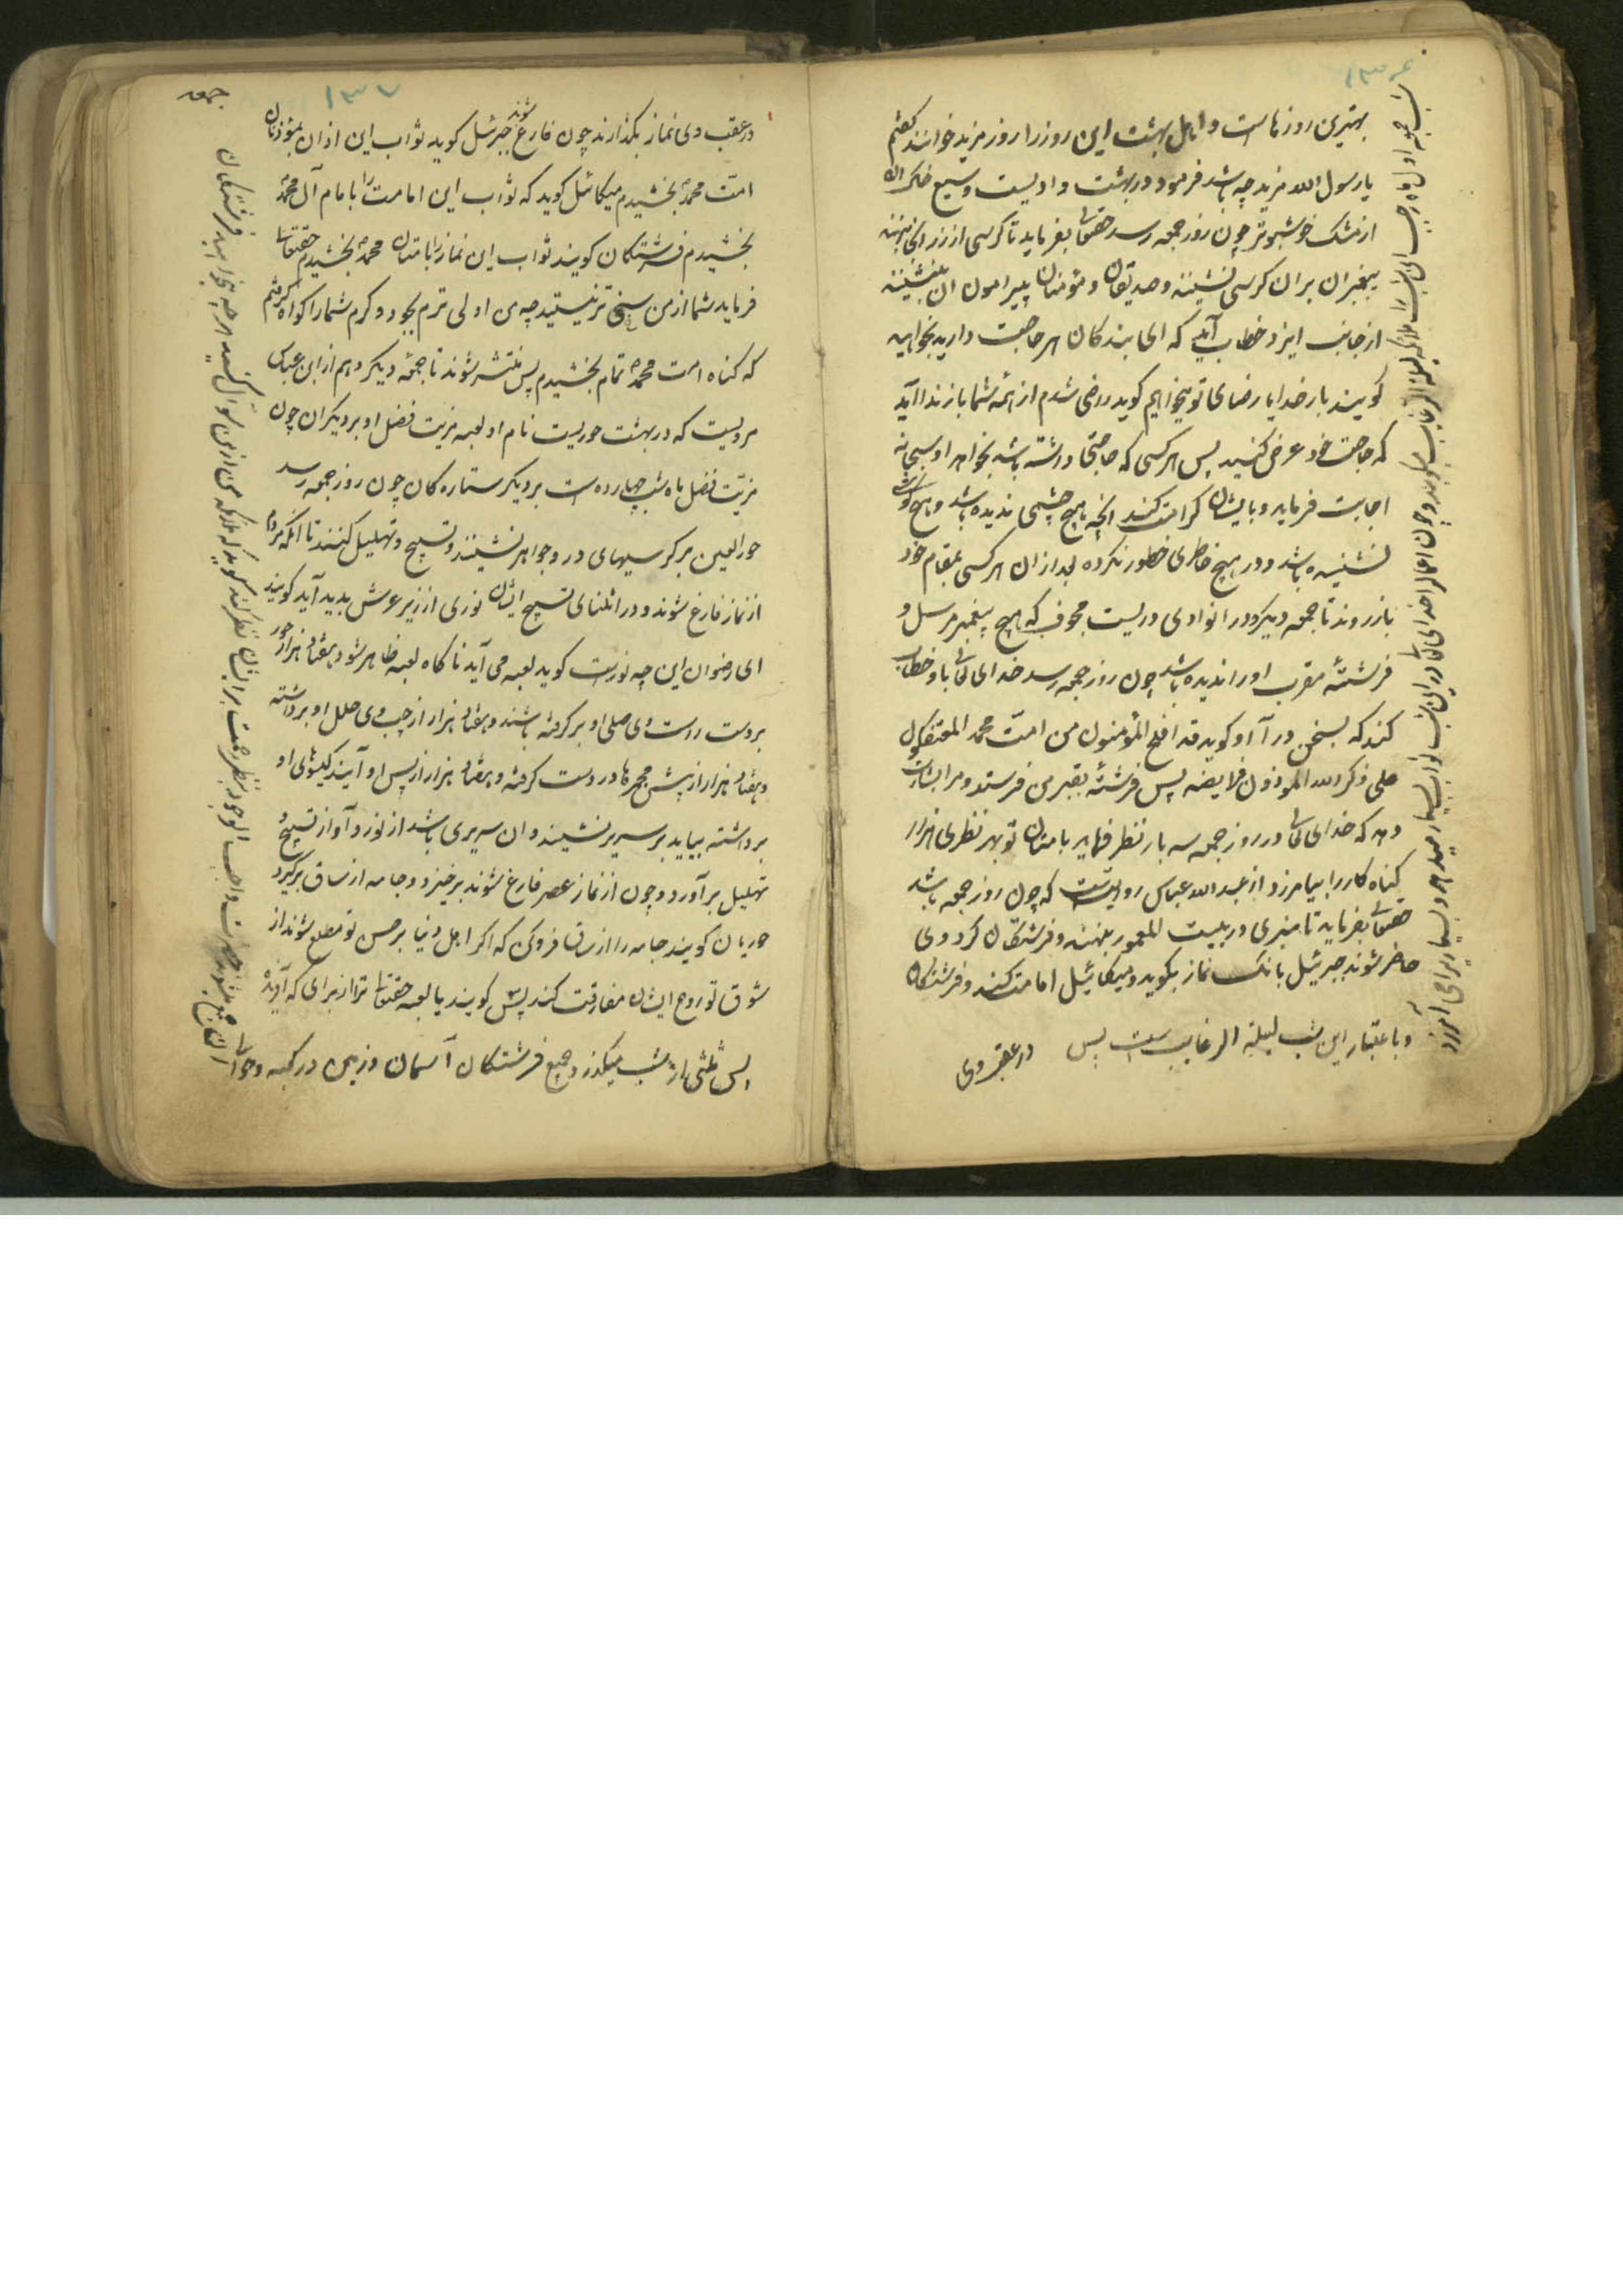 ۱۳۶
بهترین روزهاست و اهل بهشت این روز را روز مزید خوانند گفتم
یا رسول الله مزید چه باشد فرمود در بهشت وادیست وسیع خاک آن
از مشک خوشبوتر چون روز جمعه رسد حقتعالی بفرماید تا کرسی از زر انجا بنهند
پیغمبران بران کرسی نشینند و صدیقان و مؤمنان پیرامون آن بنشینند
از جانب ایزد خطاب آید که ای بندکان هر حاجت دارید بخواهید
کویند بار خدایا رضای تو میخواهیم کوید راضی شدم از همه شما باز ندا آید
که حاجت خود عرض کنید پس هر کسی که حاجتی داشته باشد بخواهد او سبحانه
اجابت فرماید و بایشان کرامت کند انچه هیچ چشمی ندیده باشد و هیچ کوش
نشنیده باشد و در هیچ خاطری خطور نکرده بعد از ان هر کسی بمقام خود
باز روند تا جمعه دیکر و در انوادی دریست مجوف که هیچ پیغمبر مرسل و
فرشتهٔ مقرب او را ندیده باشد چون روز جمعه رسد خدای تعالی باو خطاب
کند که بسخن در آ او کوید قد افلح المؤمنون من امت محمد
علی ذکر الله فرایضه پس فرشتهٔ بقبر من فرستد و مرا بشارت
دهد که خدای تعالی در روز جمعه سه بار نظر فرماید بامتان تو بهر نظری هزار
کناه کار را بیامرزد از عبد الله عباس روایتست که چون روز جمعه باشد
حقتعالی بفرماید تا منبری در بیت المعمور بنهند و فرشتکان کرد وی
حاضر شوند جبرئیل بانک نماز بکوید و میکائیل امامت کند و فرشتکان
در عقب وی
و باعتبار این شب لیلة الرغایب است پس
شب جمعه اول ماه رجب این شب را ملائکه لیلة الرغایب میکویند و چون اعمال را خدای تعالی در این شب ثواب بسیار میدهد و بسیار را می آمرزد
۱۳۷
در عقب وی نماز بکذارند چون فارغ شوند جبرئیل کوید ثواب این اذان بمؤذنان
امت محمد بخشیدم میکائیل کوید که ثواب این امامت را بامام آل محمد
بخشیدم فرشتکان کویند ثواب این نماز را بامتان محمد بخشیدم حقتعالی
فرماید شما از من سخی تر نیستید چه من اولی ترم بجود و کرم شما را کواه کرفتم
که کناه امت محمد تمام بخشیدم پس منتشر شوند تا جمعه دیکر و هم از ابن عباس
مرویست که در بهشت حوریست نام او لعبه مزیت فضل او بر دیکران چون
مزیت فضل ماه شب چهارده است بر دیکر ستاره کان چون روز جمعه رسد
حورالعین بر کرسیهای در و جواهر نشینند و تسبیح و تهلیل کنند تا انکه مردم
از نماز فارغ شوند و در اثنای تسبیح ایشان نوری از زیر عرش پدید آید کویند
ای رضوان این چه نورست کوید لعبه می آید ناکاه لعبه ظاهر شود هفتاد هزار حور
بر دست راست وی حلی او بر کرفته باشند و هفتاد هزار از چپ وی حلل او برداشته
و هفتاد هزار از پیش مجمرها در دست کرفته و هفتاد هزار از پس او آیند کیسوی او
برداشته بیاید بر سریر نشیند و ان سریری باشد از نور و آواز تسبیح و
تهلیل بر آورد و چون از نماز عصر فارغ شوند برخیزد و جامه از ساق برکیرد
حوریان کویند جامه را از ساق فرو کن که اکر اهل دنیا بر حسن تو مطلع شوند از
شوق تو روح ایشان مفارقت کند پس کویند یا لعبه حقتعالی ترا از برای که آفریده
جمعه
پس ثلثی از شب میکذرد جمیع فرشتکان آسمان و زمین در کعبه و حوالی آن جمع میشوند